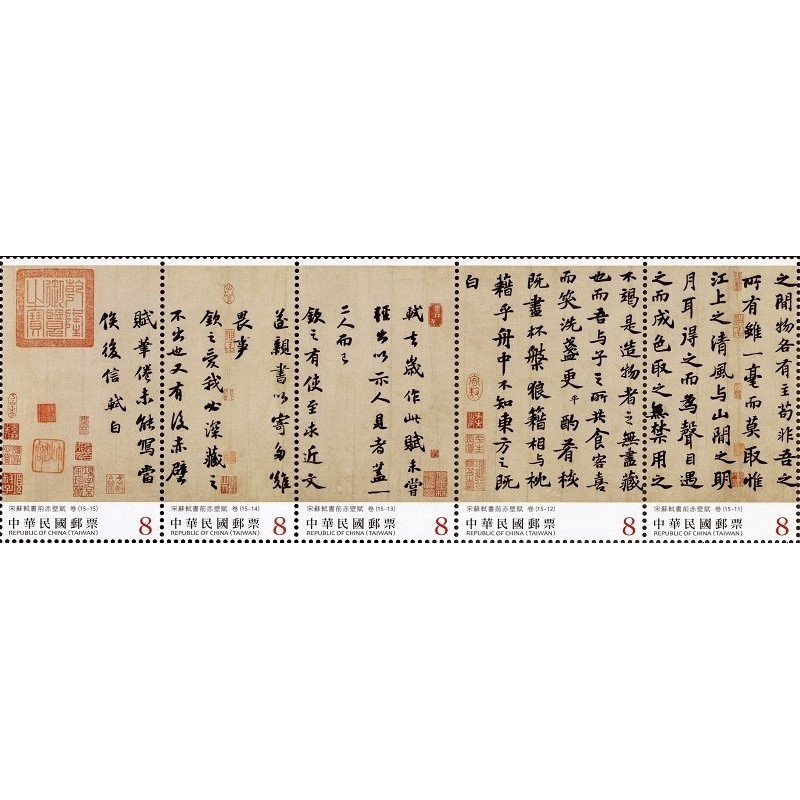 之間物各有主苟非吾之
所有雖一毫而莫取惟
江上之清風与山間之明
月耳得之而為聲目遇
之而成色取之無禁用之
宋蘇軾書前赤壁賦 卷 (15-11)
中華民國郵票
REPUBLIC OF CHINA (TAIWAN)
8
不竭是造物者之無盡藏
也而吾与子之所共食客喜
而笑洗盞更酌肴核
平
既盡杯盤狼籍相与枕
藉乎舟中不知東方之既
白
宋蘇軾書前赤壁賦 卷 (15-12)
中華民國郵票
REPUBLIC OF CHINA (TAIWAN)
8
軾去歲作此賦未嘗
輕出以示人見者盖一
二人而已
欽之有使至求近文
宋蘇軾書前赤壁賦 卷 (15-13)
中華民國郵票
REPUBLIC OF CHINA (TAIWAN)
8
遂親書以寄多難
畏事
欽之愛我必深藏之
不出也又有後赤壁
宋蘇軾書前赤壁賦 卷 (15-14)
中華民國郵票
REPUBLIC OF CHINA (TAIWAN)
8
賦筆倦未能寫當
俟後信軾白
乾隆
御覽
之寶
宋蘇軾書前赤壁賦 卷 (15-15)
中華民國郵票
REPUBLIC OF CHINA (TAIWAN)
8